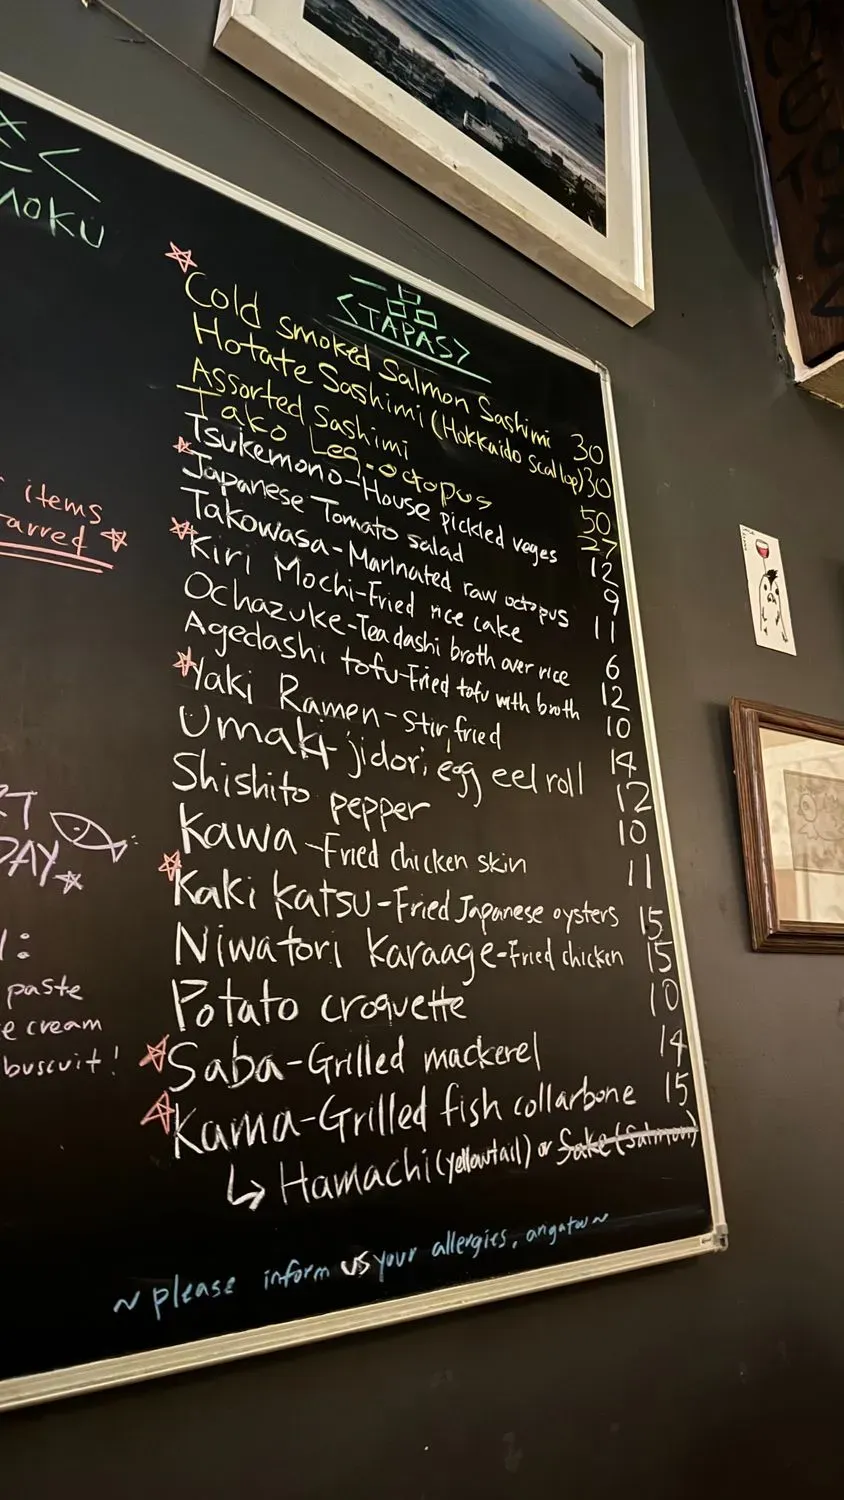 MOKU
一品
<TAPAS>
Cold smoked Salmon Sashimi 30
Hotate Sashimi (Hokkaido scallop) 30
Assorted Sashimi 50
Tako Leg-octopus 27
Tsukemono-House pickled veges 12
Japanese Tomato salad 9
Takowasa-Marinated raw octopus 11
Kiri Mochi-Fried rice cake 6
Ochazuke-Tea dashi broth over rice 12
Agedashi tofu-Fried tofu with broth 10
Yaki Ramen-Stir fried 14
Umaki-jidori egg eel roll 12
Shishito pepper 10
Kawa-Fried chicken skin 11
Kaki Katsu-Fried Japanese oysters 15
Niwatori Karaage-Fried chicken 15
Potato croquette 10
Saba-Grilled mackerel 14
Kama-Grilled fish collarbone 15
↳ Hamachi (yellowtail) or Sake (Salmon)
~ please inform us your allergies, arigatou ~
items
paste
cream
buscuit!